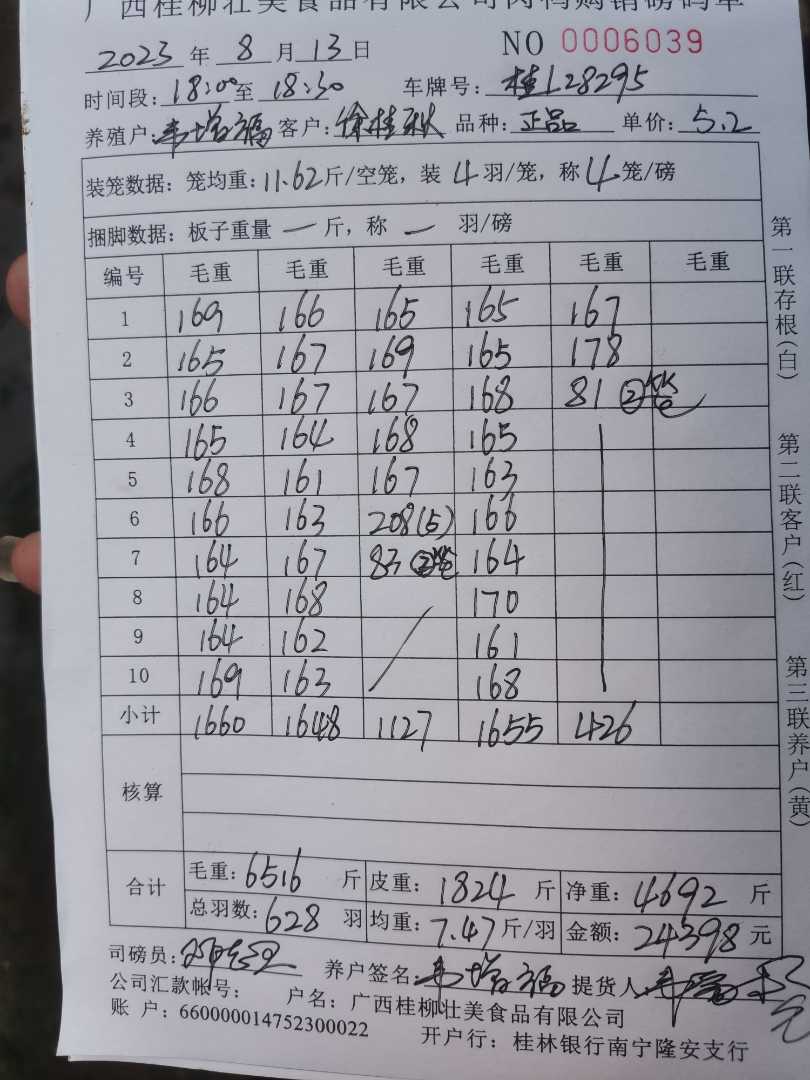 广西桂柳壮美食品有限公司肉鸭购销磅码单
2023 年 8 月 13 日 NO 0006039
时间段: 18:00 至 18:30 车牌号: 桂L28295
养殖户: 韦增福 客户: 徐桂秋 品种: 正品 单价: 5.2
装笼数据: 笼均重: 11.62 斤/空笼, 装 4 羽/笼, 称 4 笼/磅
捆脚数据: 板子重量 一 斤, 称 一 羽/磅
编号 毛重 毛重 毛重 毛重 毛重 毛重
1 169 166 165 165 167
2 165 167 169 165 178
3 166 167 167 168 81 ②笼
4 165 164 168 165
5 168 161 167 163
6 166 163 208(5) 166
7 164 167 83 ②笼 164
8 164 168 170
9 164 162 161
10 169 163 168
小计 1660 1648 1127 1655 426
核算
合计 毛重: 6516 斤 皮重: 1824 斤 净重: 4692 斤
总羽数: 628 羽 均重: 7.47 斤/羽 金额: 24398 元
司磅员: 养户签名: 韦增福 提货人
公司汇款帐号: 户名: 广西桂柳壮美食品有限公司
账 户: 660000014752300022 开户行: 桂林银行南宁隆安支行
第一联存根(白)
第二联客户(红)
第三联养户(黄)